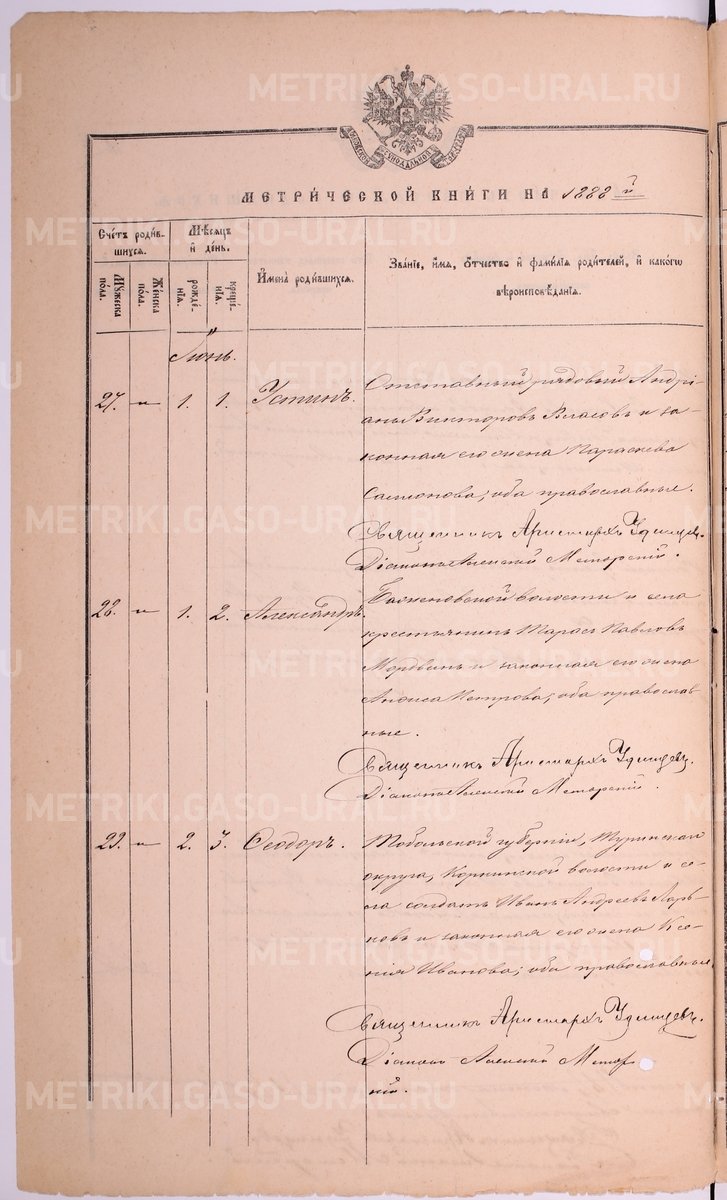 МЕТРИЧЕСКОЙ КНИГИ НА 1888 й
Счетъ родив-
шихся.
Мѣсяцъ
и день.
Имена родившихся.
Званіе, имя, отчество и фамилія родителей, и какого
вѣроисповѣданія.
Мужеска
пола.
Женска
пола.
рожде-
нія.
креще-
нія.
Іюнь.
27. " 1. 1. Устинъ.
Отставный рядовый Андрі-
анъ Викторовъ Власовъ и за-
конная его жена Параскева
Самсонова; оба православные.
Священникъ Аристархъ Удинцевъ.
Діаконъ Алексій
28. " 1. 2. Александръ.
волости и села
крестьянинъ Тарасъ Павловъ
Мордвинъ и законная его жена
Анфиса Петрова; оба православ-
ные.
Священникъ Аристархъ Удинцевъ.
Діаконъ Алексій
29. " 2. 3. Ѳеодоръ.
Тобольской губерніи, Туринскаго
округа, Коркинской волости и се-
ла солдатъ Иванъ Андреевъ Ларь-
ковъ и законная его жена Ксе-
нія Иванова; оба православные.
Священникъ Аристархъ Удинцевъ.
Діаконъ Алексій
METRIKI.GASO-URAL.RU